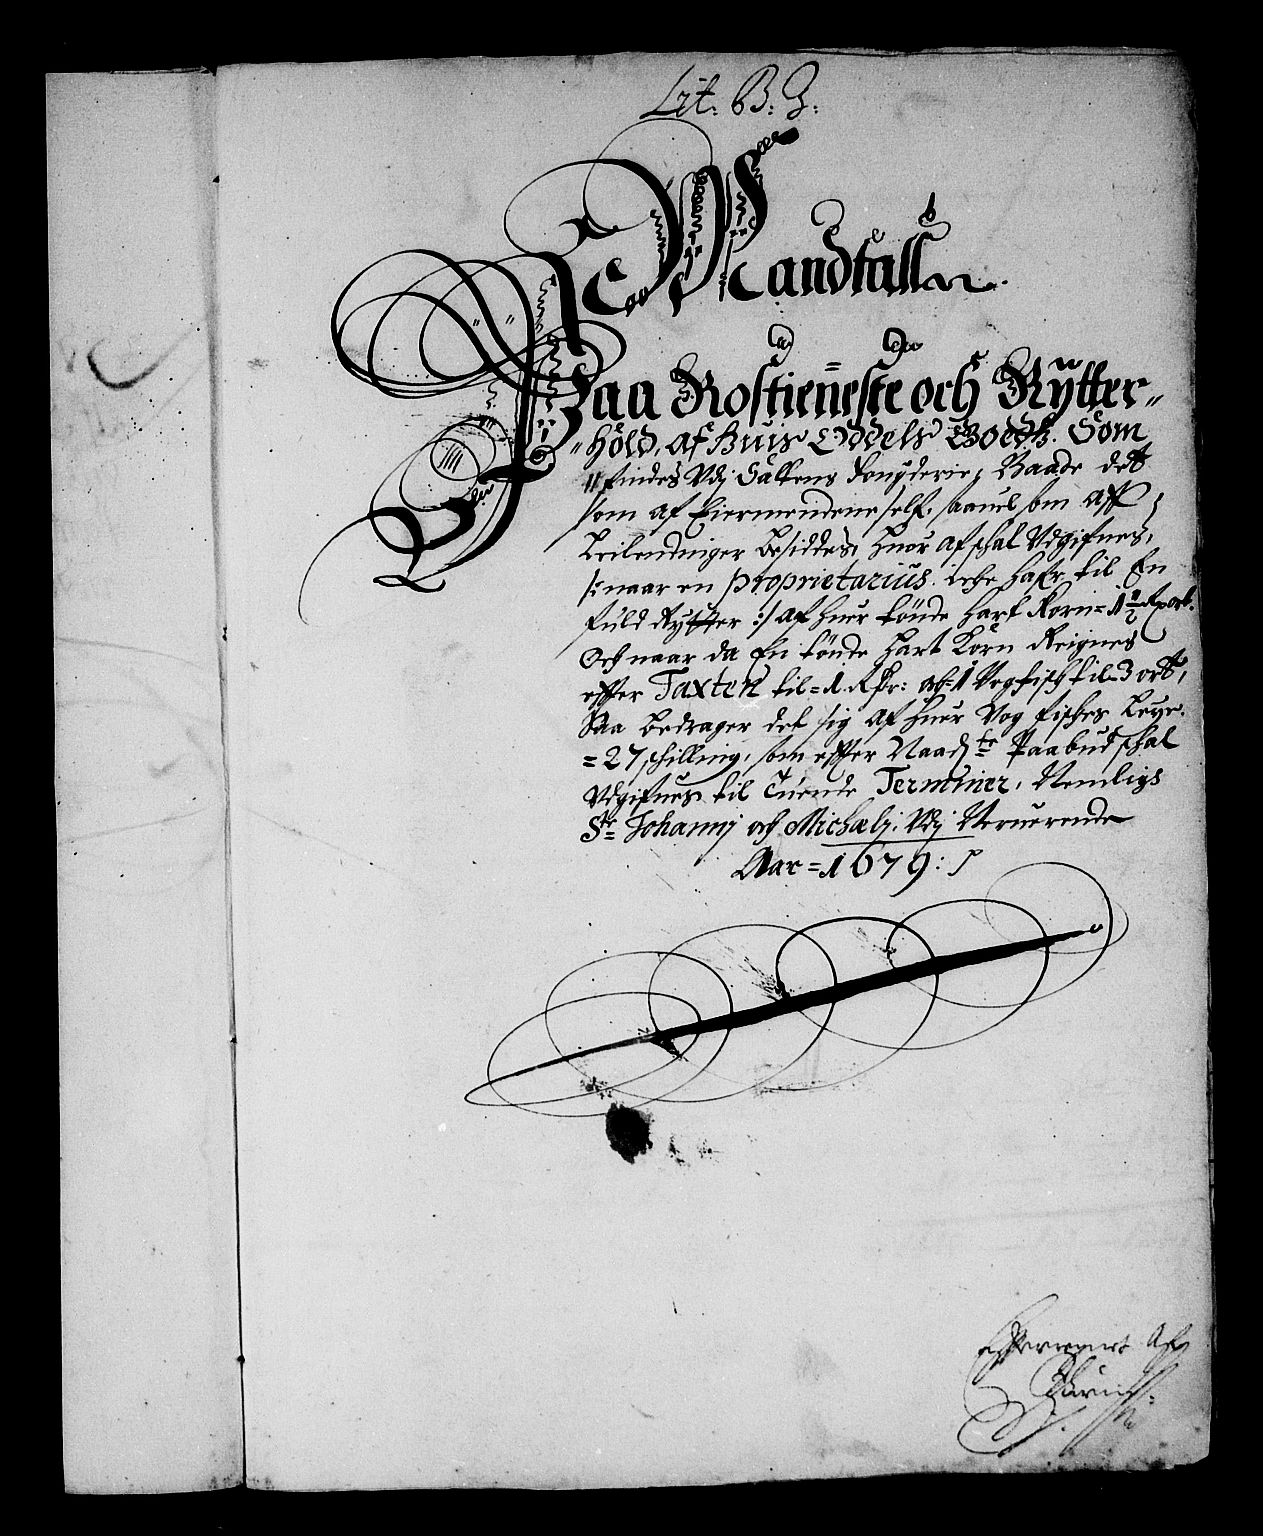 Lit: B: 3:
Mandtall
Paa Rostienneste och Rytter-
hold, af huis Oddels Goedtz. Som
findes Vdj Saltens fougderie, Baade det
som af Eiermendene self. saauel som aff
Leilendinger besiddes, huor af schal Vdgifues,
/: naar en proprietarius icke hafr til En
fuld Rytter :/ af huer tönde hart Korn = 1 1/2 Rxort.
Och naar da En tönde hart Korn Reignes
effter Taxten til = 1 Rdr: och = 1 Vog fisch til = 3 ort,
Saa bedrager det sig af huer Vog fisches Leye.
= 27 schilling, som effter Naadste Paabud schal
Vdgifues til tuende Terminer, Nemligs
Ste Johannj och Michaelj. Vdj Neruerende
Aar = 1679: